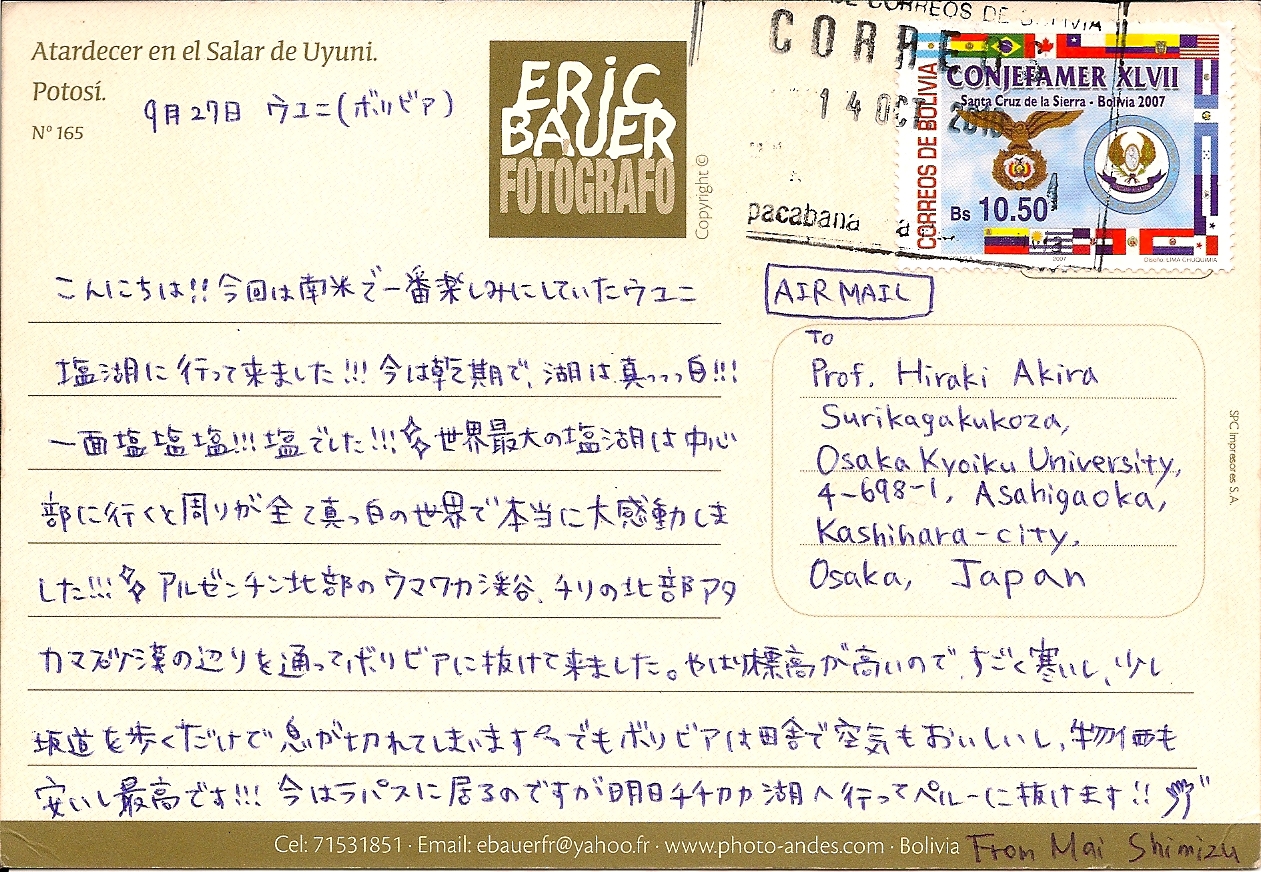 Atardecer en el Salar de Uyuni.
Potosí.
Nº 165
9月27日 ウユニ(ボリビア)
ERIC
BAUER
FOTÓGRAFO
Copyright ©
CORREOS DE
CORREO
14 OCT 2010
pacabana
CORREOS DE BOLIVIA
CONJEFAMER XLVII
Santa Cruz de la Sierra - Bolivia 2007
Bs 10.50
2007
Diseño: LIMA CHUQUIMIA
こんにちは!!今回は南米で一番楽しみにしていたウユニ
塩湖に行って来ました!!!今は乾期で、湖は真っっっ白!!!
一面塩塩塩!!!塩でした!!!世界最大の塩湖は中心
部に行くと周りが全て真っ白の世界で本当に大感動しま
した!!!アルゼンチン北部のウマワカ渓谷、チリの北部アタ
カマ砂漠の辺りを通ってボリビアに抜けて来ました。やはり標高が高いので、すごく寒いし、少し
坂道を歩くだけで息が切れてしまいます でもボリビアは田舎で空気もおいしいし、物価も
安いし最高です!!!今はラパスに居るのですが明日チチカカ湖へ行ってペルーに抜けます!!
AIR MAIL
To
Prof. Hiraki Akira
Surikagakukoza,
Osaka Kyoiku University,
4-698-1, Asahigaoka,
Kashihara-city,
Osaka, Japan
SPC Impresores S.A.
Cel: 71531851 · Email: ebauerfr@yahoo.fr · www.photo-andes.com · Bolivia
From Mai Shimizu